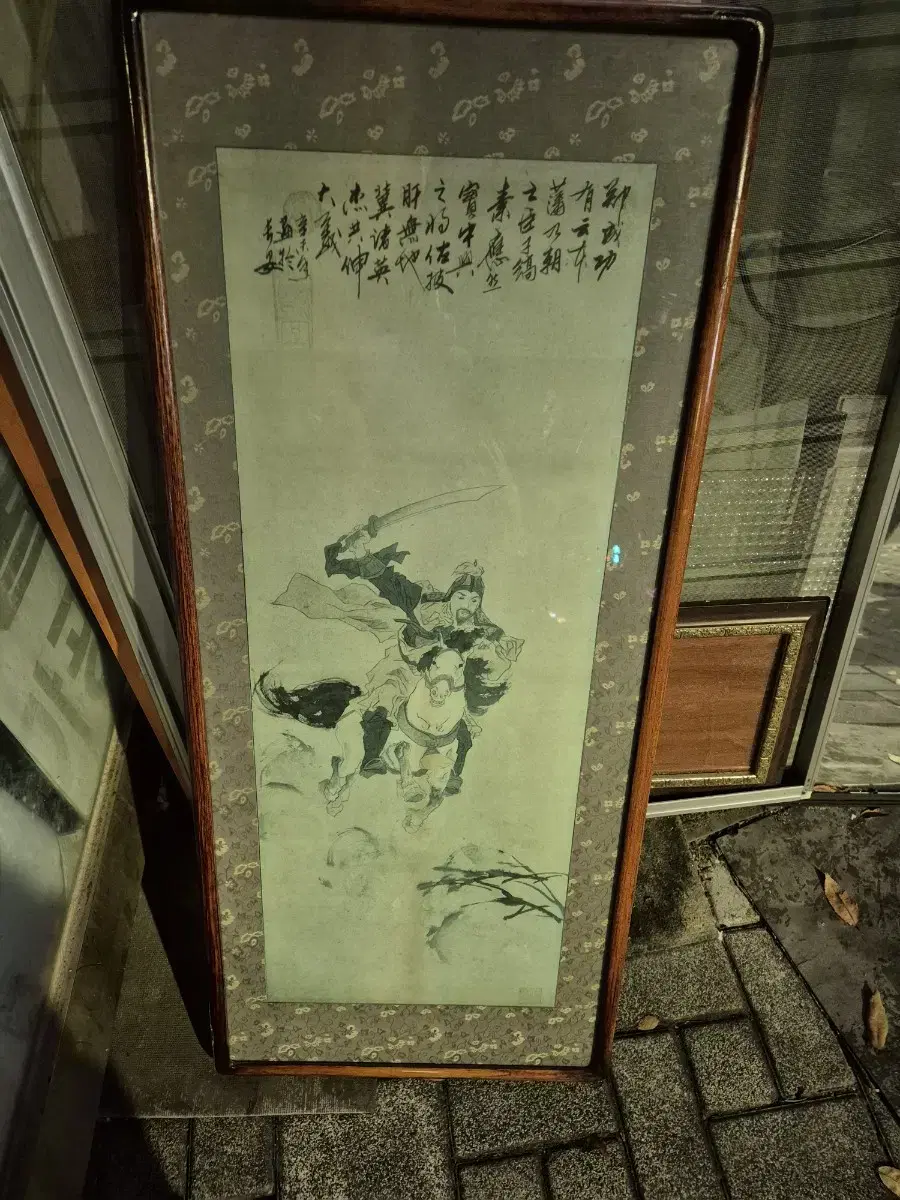 鄭成功
有云本
藩乃朝
之臣子縞
素應然
實中興
之將佐披
肝無地
冀諸英
杰共伸
大義
辛未